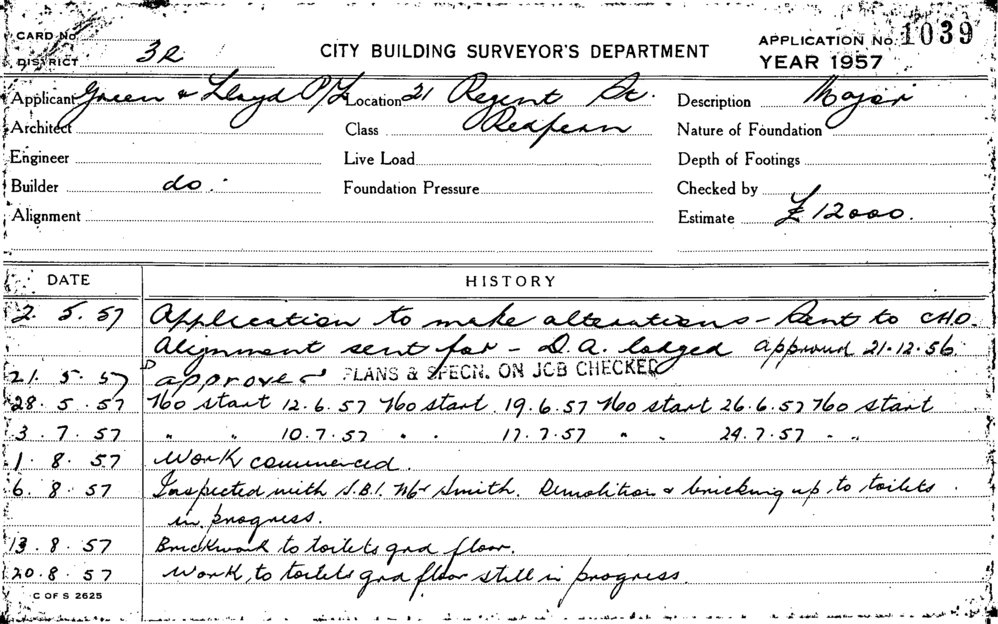 CARD No.
DISTRICT 32
CITY BUILDING SURVEYOR'S DEPARTMENT
APPLICATION No. 1039
YEAR 1957
Applicant Green & Lloyd P/L Location 21 Regent St. Description Major
Architect Class Redfern Nature of Foundation
Engineer Live Load Depth of Footings
Builder do. Foundation Pressure Checked by
Alignment Estimate £12000.
DATE HISTORY
2. 5. 57 Application to make alterations - Sent to C.H.O.
Alignment sent for - D.A. lodged approved 21.12.56.
21. 5. 57 approved PLANS & SPECN. ON JOB CHECKED
28. 5. 57 No start 12.6.57 No start. 19.6.57 No start 26.6.57 No start
3. 7. 57 " " 10.7.57 " " 17.7.57 " " 24.7.57 " "
1. 8. 57 Work commenced.
6. 8. 57 Inspected with S.B.I. Mr Smith. Demolition & bricking up to toilets
in progress.
13. 8. 57 Brickwork to toilets grd floor.
20. 8. 57 Work to toilets grd floor still in progress.
C OF S 2625